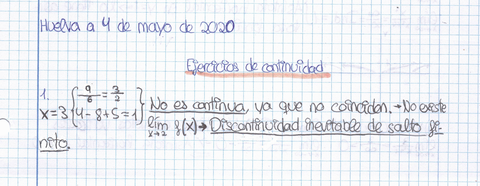 Huelva a 4 de mayo de 2020
Ejercicios de continuidad
1.
x=3 { 9/6 = 3/2
4-8+5=1 } No es continua, ya que no coinciden. → No existe
lim x→2 f(x) → Discontinuidad inevitable de salto fi-
nito.